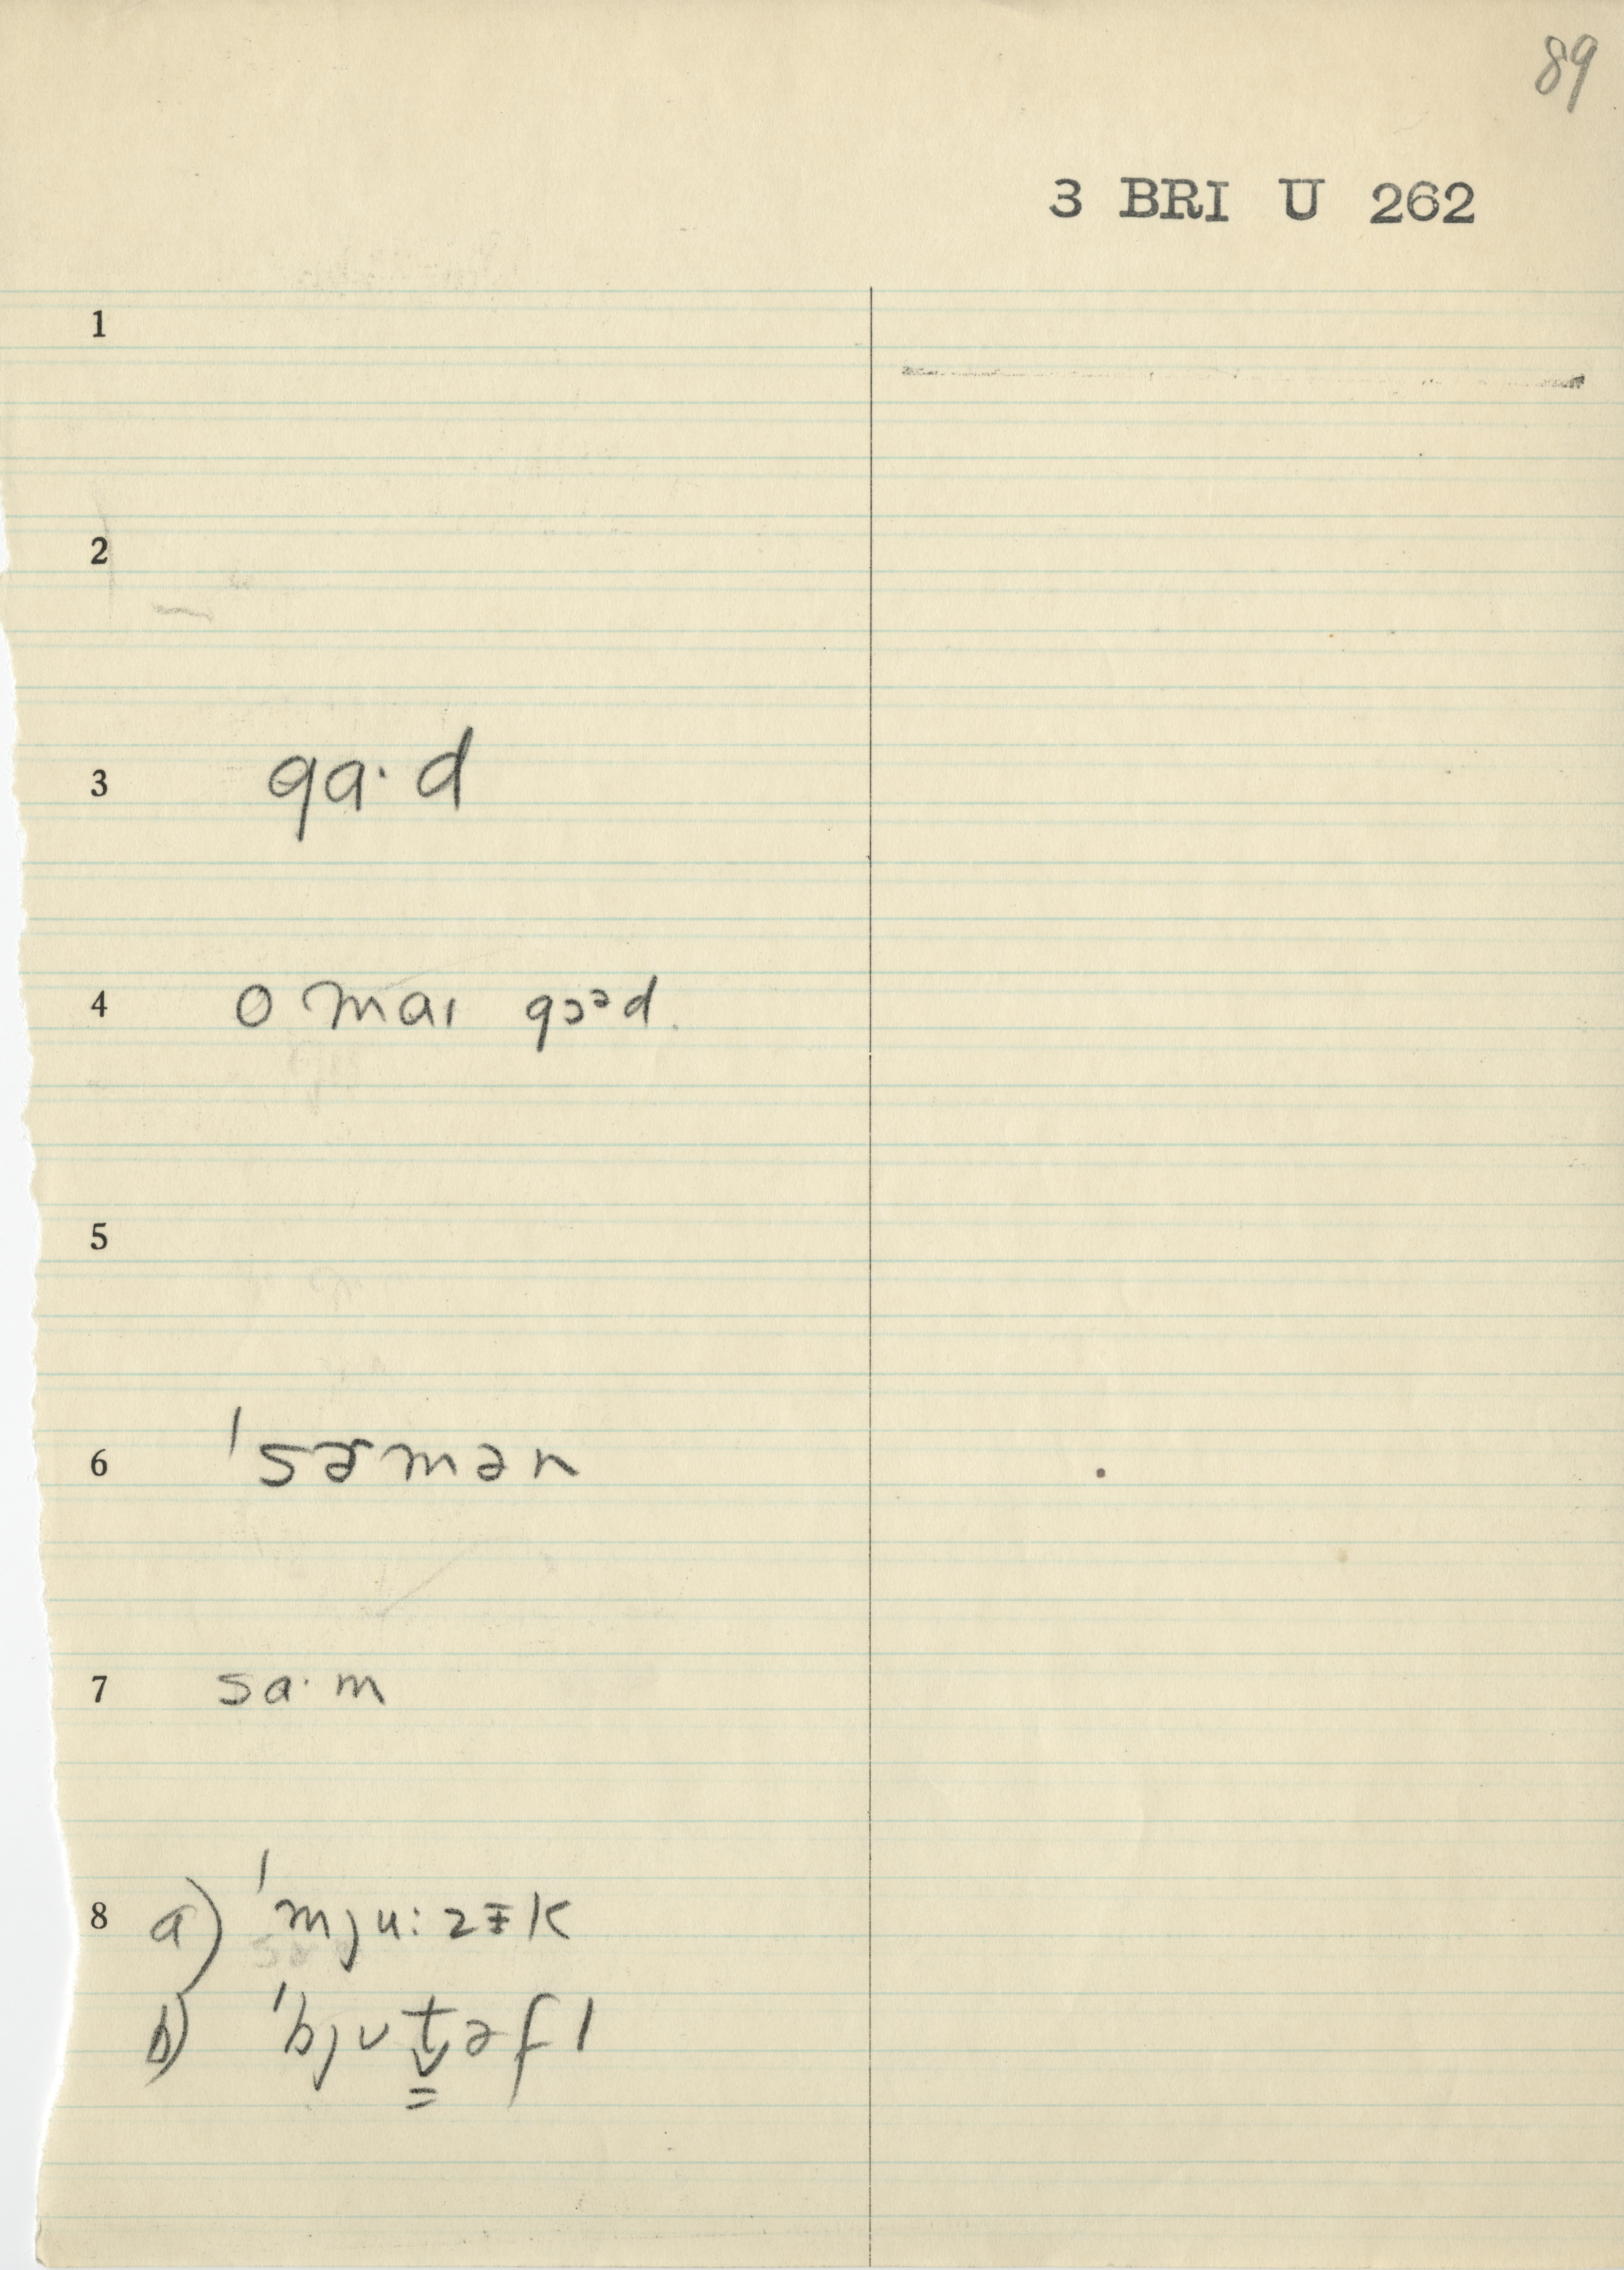 89
3 BRI U 262
1
2
3 gɑ· d
4 o maɪ gɔᵊd.
5
6 ˈsɚmən
7 sɑ· m
8 a) ˈmju: zɪ̵k
b) ˈbjʊt̬əfl